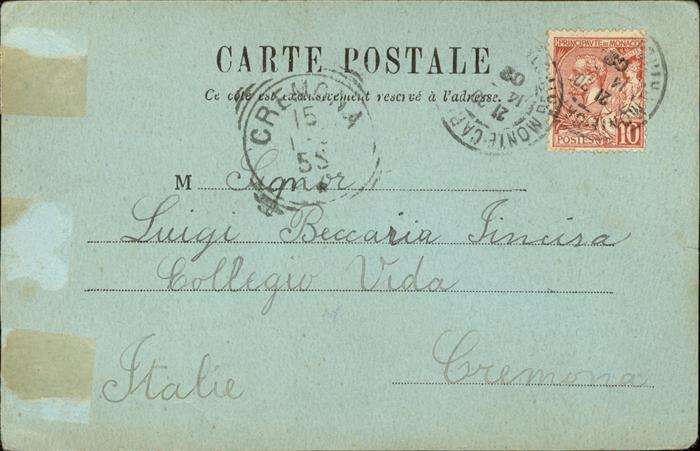 CARTE POSTALE
Ce côté est exclusivement réservé à l'adresse.
PRINCIPAUTÉ DE MONACO
POSTES
10
MONTE-CARLO
CREMONA
15
55
M Signor
Luigi Beccaria Incisa
Collegio Vida
Cremona
Italie